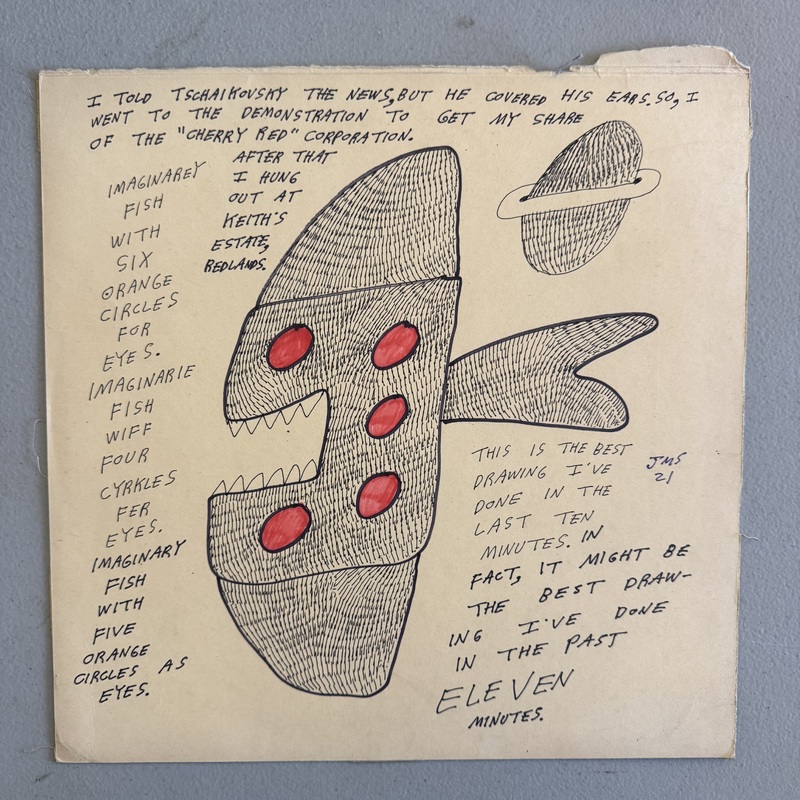 I TOLD TSCHAIKOVSKY THE NEWS, BUT HE COVERED HIS EARS. SO, I
WENT TO THE DEMONSTRATION TO GET MY SHARE
OF THE "CHERRY RED" CORPORATION.
AFTER THAT
I HUNG
OUT AT
KEITH'S
ESTATE,
REDLANDS.
IMAGINAREY
FISH
WITH
SIX
ORANGE
CIRCLES
FOR
EYES.
IMAGINARIE
FISH
WIFF
FOUR
CYRKLES
FER
EYES.
IMAGINARY
FISH
WITH
FIVE
ORANGE
CIRCLES AS
EYES.
THIS IS THE BEST
DRAWING I'VE
DONE IN THE
LAST TEN
MINUTES. IN
FACT, IT MIGHT BE
THE BEST DRAW-
ING I'VE DONE
IN THE PAST
ELEVEN
MINUTES.
JMS
21